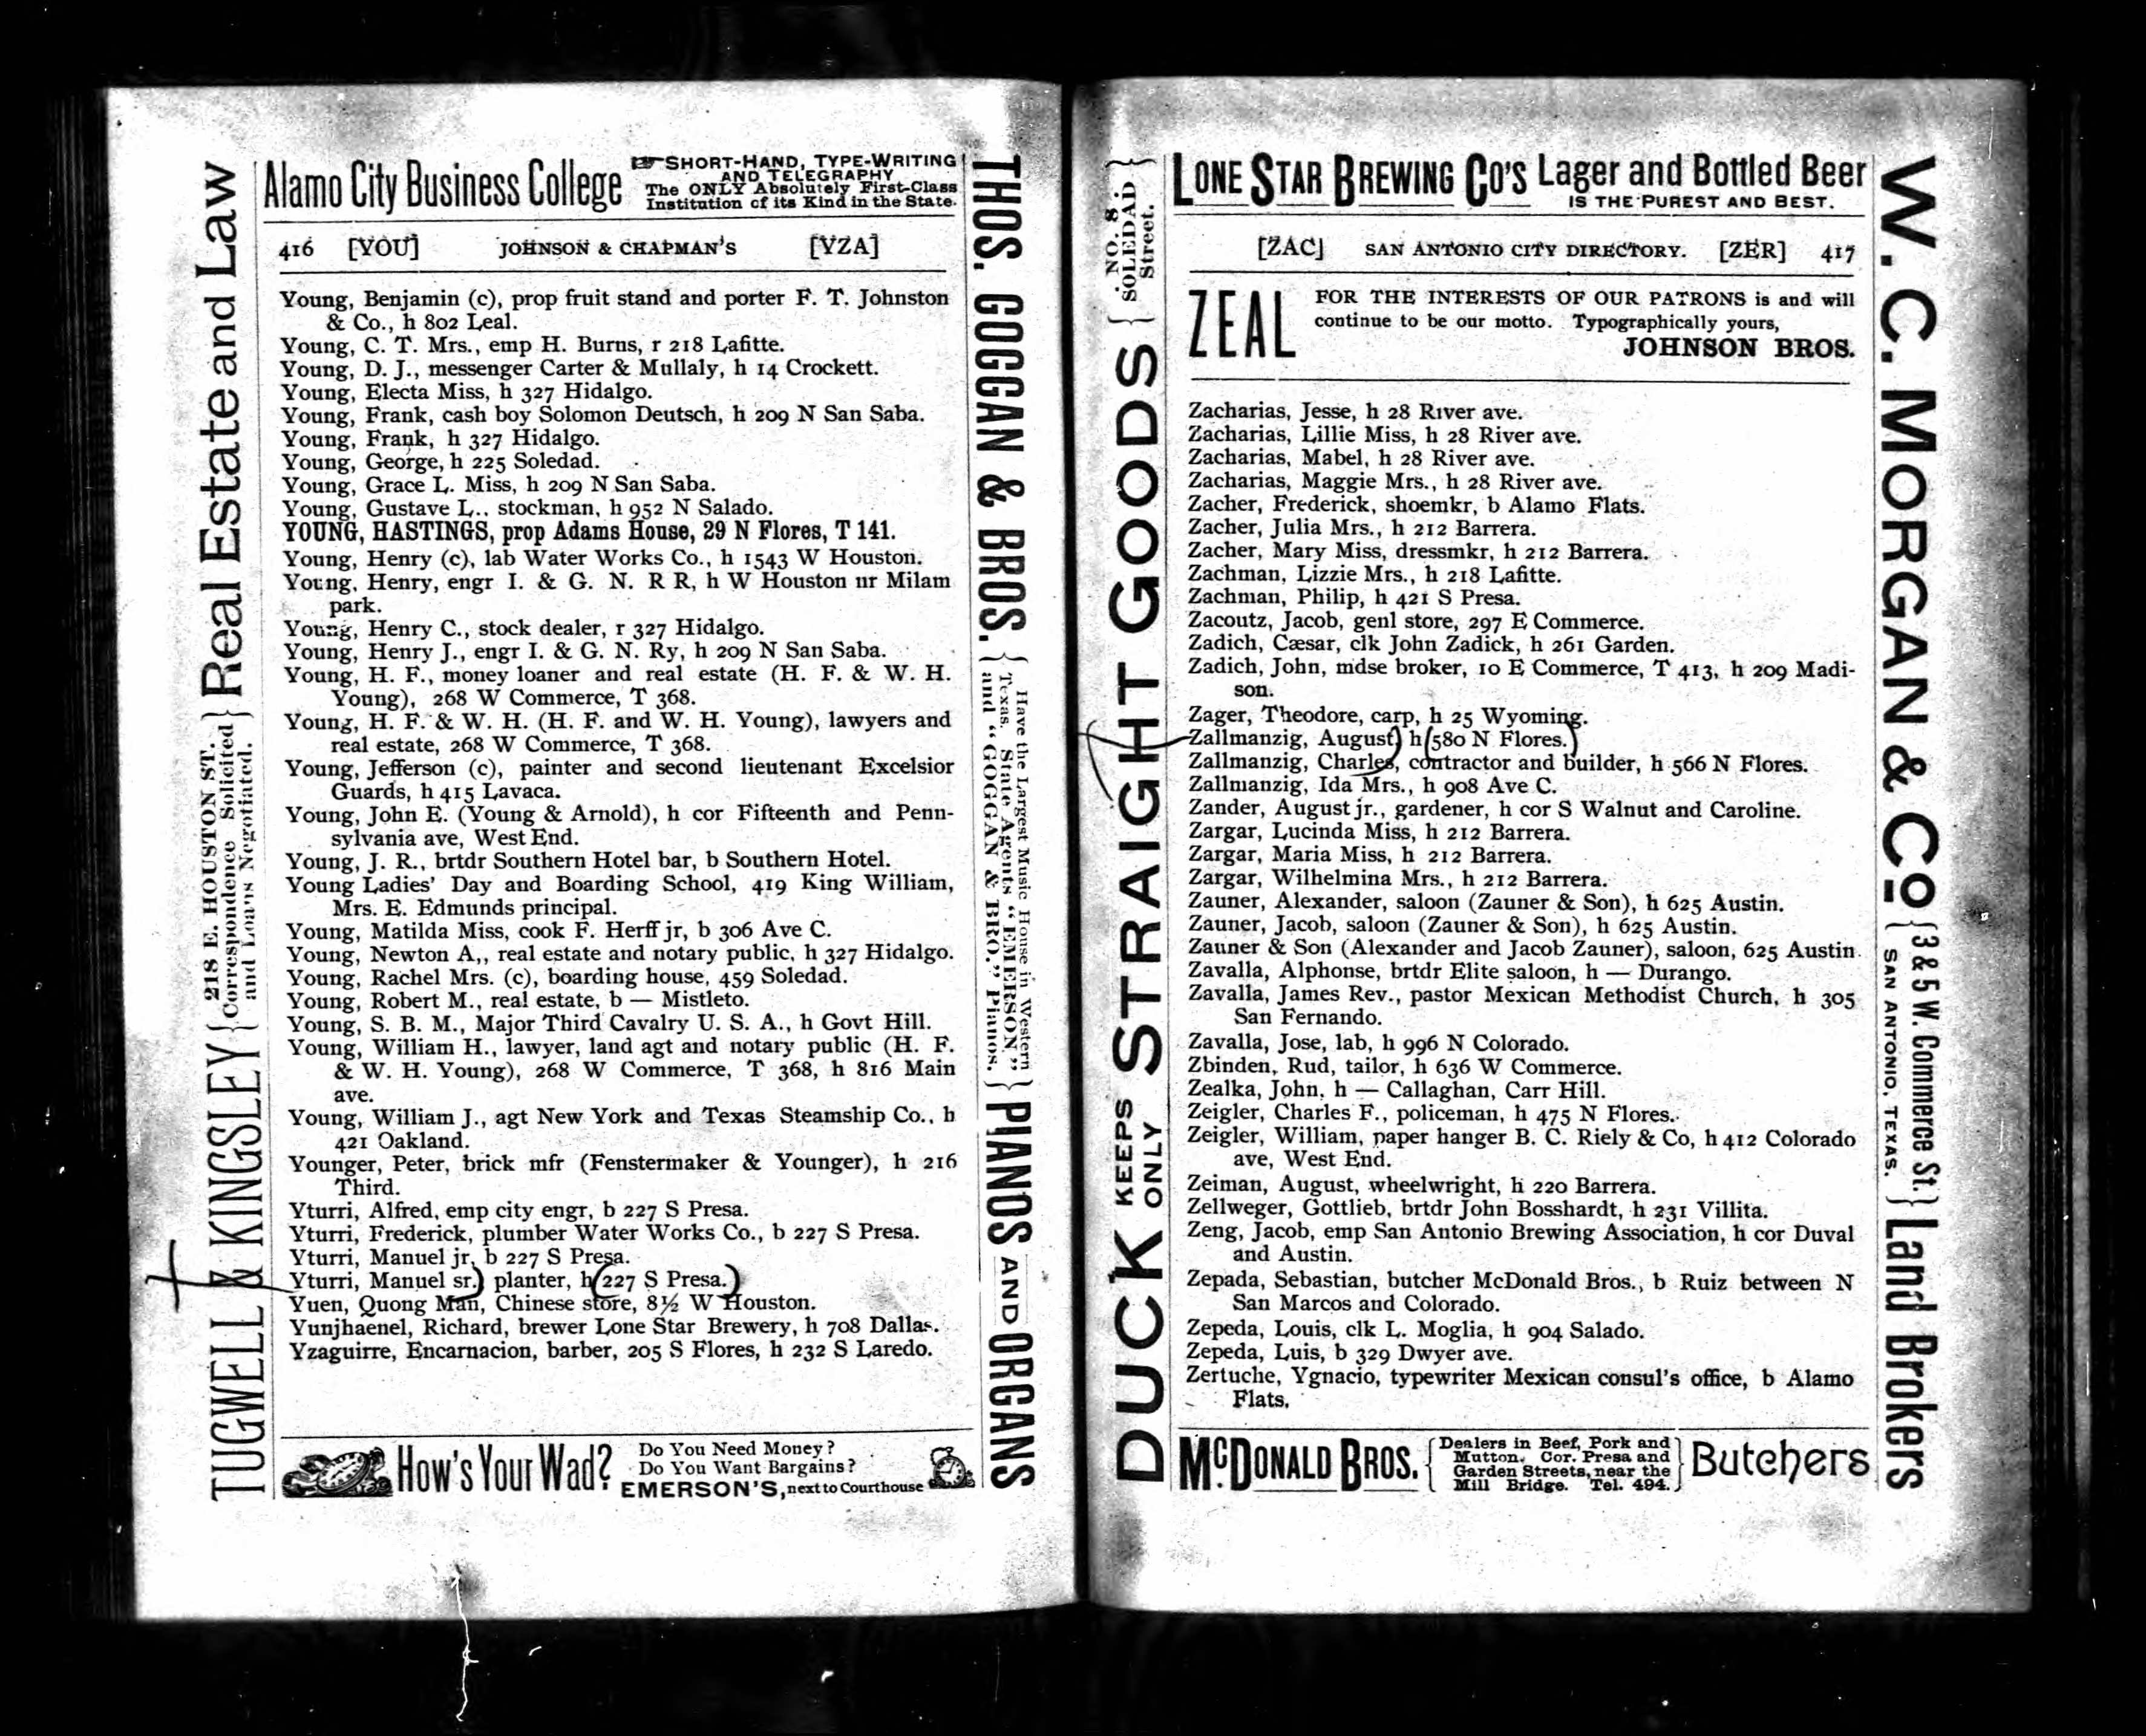 TUGWELL & KINGSLEY { 218 E. HOUSTON ST. Correspondence Solicited and Loans Negotiated. } Real Estate and Law
Alamo City Business College
SHORT-HAND, TYPE-WRITING
AND TELEGRAPHY
The ONLY Absolutely First-Class
Institution of its Kind in the State.
416 [YOU] JOHNSON & CHAPMAN'S [YZA]
Young, Benjamin (c), prop fruit stand and porter F. T. Johnston
& Co., h 802 Leal.
Young, C. T. Mrs., emp H. Burns, r 218 Lafitte.
Young, D. J., messenger Carter & Mullaly, h 14 Crockett.
Young, Electa Miss, h 327 Hidalgo.
Young, Frank, cash boy Solomon Deutsch, h 209 N San Saba.
Young, Frank, h 327 Hidalgo.
Young, George, h 225 Soledad.
Young, Grace L. Miss, h 209 N San Saba.
Young, Gustave L., stockman, h 952 N Salado.
YOUNG, HASTINGS, prop Adams House, 29 N Flores, T 141.
Young, Henry (c), lab Water Works Co., h 1543 W Houston.
Young, Henry, engr I. & G. N. R R, h W Houston nr Milam
park.
Young, Henry C., stock dealer, r 327 Hidalgo.
Young, Henry J., engr I. & G. N. Ry, h 209 N San Saba.
Young, H. F., money loaner and real estate (H. F. & W. H.
Young), 268 W Commerce, T 368.
Young, H. F. & W. H. (H. F. and W. H. Young), lawyers and
real estate, 268 W Commerce, T 368.
Young, Jefferson (c), painter and second lieutenant Excelsior
Guards, h 415 Lavaca.
Young, John E. (Young & Arnold), h cor Fifteenth and Penn-
sylvania ave, West End.
Young, J. R., brtdr Southern Hotel bar, b Southern Hotel.
Young Ladies' Day and Boarding School, 419 King William,
Mrs. E. Edmunds principal.
Young, Matilda Miss, cook F. Herff jr, b 306 Ave C.
Young, Newton A,, real estate and notary public, h 327 Hidalgo.
Young, Rachel Mrs. (c), boarding house, 459 Soledad.
Young, Robert M., real estate, b — Mistleto.
Young, S. B. M., Major Third Cavalry U. S. A., h Govt Hill.
Young, William H., lawyer, land agt and notary public (H. F.
& W. H. Young), 268 W Commerce, T 368, h 816 Main
ave.
Young, William J., agt New York and Texas Steamship Co., h
421 Oakland.
Younger, Peter, brick mfr (Fenstermaker & Younger), h 216
Third.
Yturri, Alfred, emp city engr, b 227 S Presa.
Yturri, Frederick, plumber Water Works Co., b 227 S Presa.
Yturri, Manuel jr, b 227 S Presa.
Yturri, Manuel sr. planter, h 227 S Presa.
Yuen, Quong Man, Chinese store, 8½ W Houston.
Yunjhaenel, Richard, brewer Lone Star Brewery, h 708 Dallas.
Yzaguirre, Encarnacion, barber, 205 S Flores, h 232 S Laredo.
How's Your Wad?
Do You Need Money?
Do You Want Bargains?
EMERSON'S, next to Courthouse
THOS. GOGGAN & BROS. { Have the Largest Music House in Western Texas. State Agents "EMERSON," and "GOGGAN & BRO." Pianos. } PIANOS AND ORGANS
DUCK KEEPS ONLY STRAIGHT GOODS { NO. 8. SOLEDAD Street. }
LONE STAR BREWING CO'S Lager and Bottled Beer
IS THE PUREST AND BEST.
[ZAC] SAN ANTONIO CITY DIRECTORY. [ZER] 417
ZEAL
FOR THE INTERESTS OF OUR PATRONS is and will
continue to be our motto. Typographically yours,
JOHNSON BROS.
Zacharias, Jesse, h 28 River ave.
Zacharias, Lillie Miss, h 28 River ave.
Zacharias, Mabel, h 28 River ave.
Zacharias, Maggie Mrs., h 28 River ave.
Zacher, Frederick, shoemkr, b Alamo Flats.
Zacher, Julia Mrs., h 212 Barrera.
Zacher, Mary Miss, dressmkr, h 212 Barrera.
Zachman, Lizzie Mrs., h 218 Lafitte.
Zachman, Philip, h 421 S Presa.
Zacoutz, Jacob, genl store, 297 E Commerce.
Zadich, Cæsar, clk John Zadick, h 261 Garden.
Zadich, John, mdse broker, 10 E Commerce, T 413, h 209 Madi-
son.
Zager, Theodore, carp, h 25 Wyoming.
Zallmanzig, August, h 580 N Flores.
Zallmanzig, Charles, contractor and builder, h 566 N Flores.
Zallmanzig, Ida Mrs., h 908 Ave C.
Zander, August jr., gardener, h cor S Walnut and Caroline.
Zargar, Lucinda Miss, h 212 Barrera.
Zargar, Maria Miss, h 212 Barrera.
Zargar, Wilhelmina Mrs., h 212 Barrera.
Zauner, Alexander, saloon (Zauner & Son), h 625 Austin.
Zauner, Jacob, saloon (Zauner & Son), h 625 Austin.
Zauner & Son (Alexander and Jacob Zauner), saloon, 625 Austin.
Zavalla, Alphonse, brtdr Elite saloon, h — Durango.
Zavalla, James Rev., pastor Mexican Methodist Church, h 305
San Fernando.
Zavalla, Jose, lab, h 996 N Colorado.
Zbinden, Rud, tailor, h 636 W Commerce.
Zealka, John, h — Callaghan, Carr Hill.
Zeigler, Charles F., policeman, h 475 N Flores.
Zeigler, William, paper hanger B. C. Riely & Co, h 412 Colorado
ave, West End.
Zeiman, August, wheelwright, h 220 Barrera.
Zellweger, Gottlieb, brtdr John Bosshardt, h 231 Villita.
Zeng, Jacob, emp San Antonio Brewing Association, h cor Duval
and Austin.
Zepada, Sebastian, butcher McDonald Bros., b Ruiz between N
San Marcos and Colorado.
Zepeda, Louis, clk L. Moglia, h 904 Salado.
Zepeda, Luis, b 329 Dwyer ave.
Zertuche, Ygnacio, typewriter Mexican consul's office, b Alamo
Flats.
McDONALD BROS.
Dealers in Beef, Pork and
Mutton. Cor. Presa and
Garden Streets, near the
Mill Bridge. Tel. 494.
Butchers
W. C. MORGAN & CO { 3 & 5 W. Commerce St. SAN ANTONIO, TEXAS. } Land Brokers